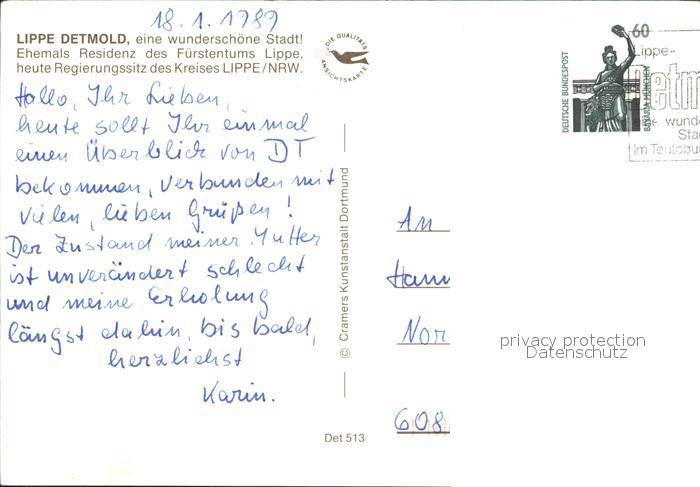 18.1.1989
LIPPE DETMOLD, eine wunderschöne Stadt!
Ehemals Residenz des Fürstentums Lippe,
heute Regierungssitz des Kreises LIPPE/NRW.
DIE QUALITÄTS
ANSICHTSKARTE
Hallo, Ihr Lieben,
heute sollt Ihr einmal
einen Überblick von DT
bekommen, verbunden mit
vielen, lieben Grüßen!
Der Zustand meiner Mutter
ist unverändert schlecht
und meine Erholung
längst dahin, bis bald,
herzlichst
Karin.
© Cramers Kunstanstalt Dortmund
Det 513
60
DEUTSCHE BUNDESPOST
BAVARIA MÜNCHEN
Lippe-
Detm
wund
Sta
im Teutobu
An
Hann
Nor
608
privacy protection
Datenschutz